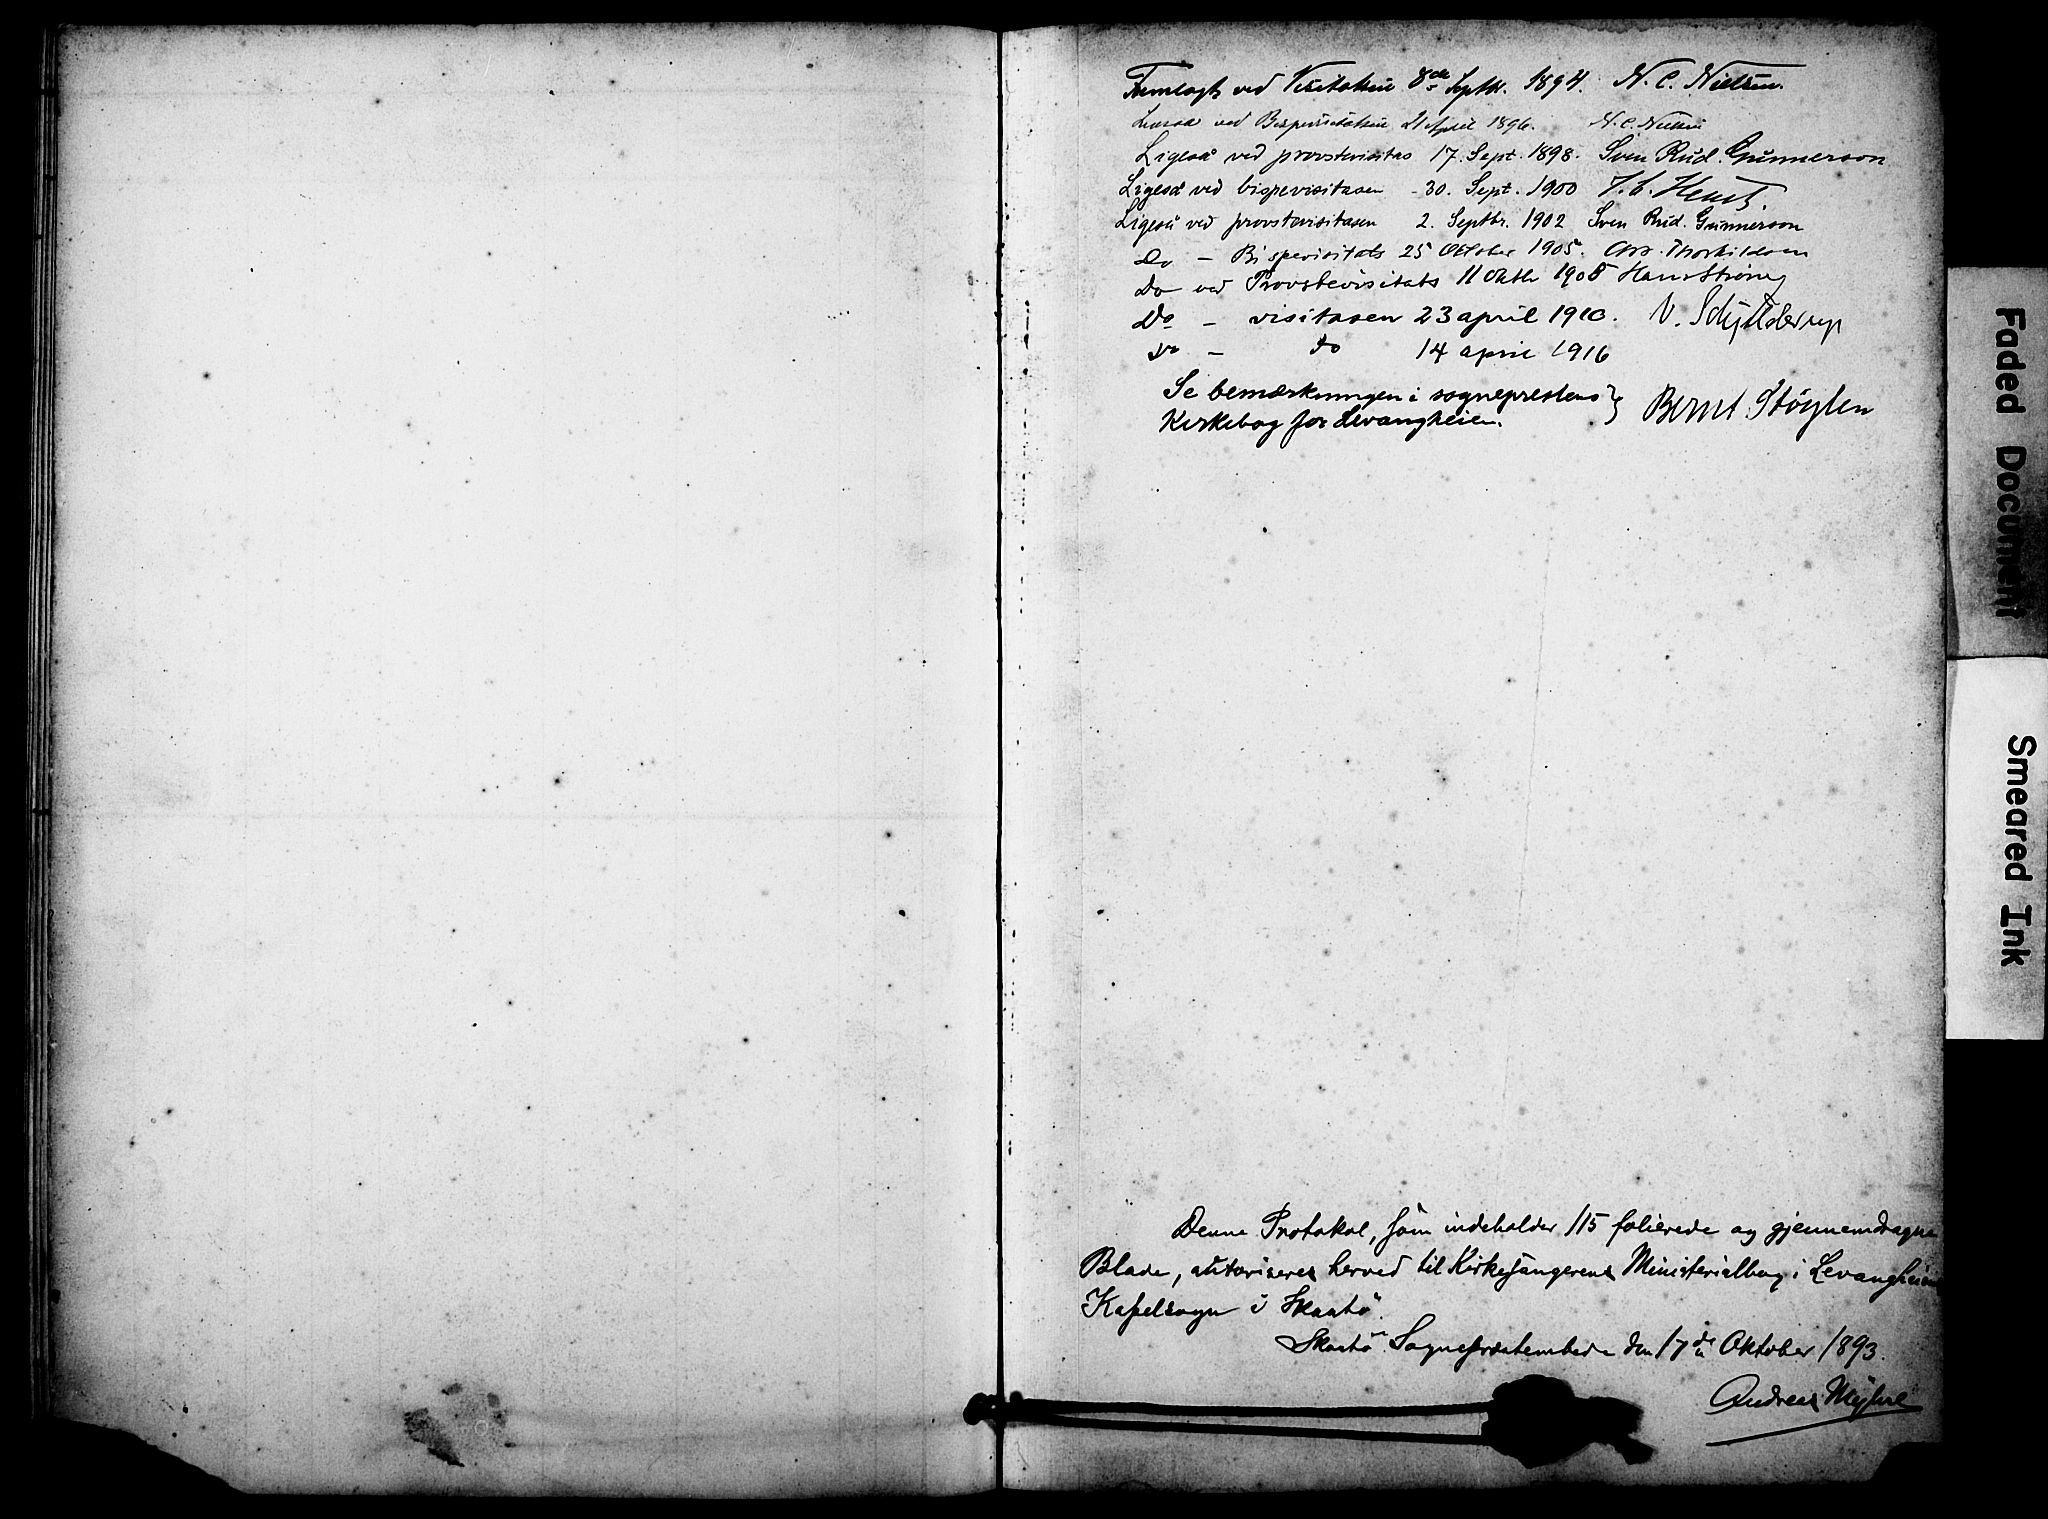 Fremlagt ved Visitatsen 8de Septbr. 1894. N. C. Nielsen.
Ligesaa ved Bispevisitatsen 21 April 1896. N. C. Nielsen
Ligeså ved provstevisitas 17. Sept. 1898. Sven Rud. Gunnerson
Ligeså ved bispevisitasen 30. Sept. 1900
Ligeså ved provstevisitasen 2. Septbr. 1902 Sven Rud. Gunnerson
Do — Bispevisitats 25 Oktober 1905. Thorkildsen
Do ved Provstevisitats 11 Oktbr 1908 Hans Strøm
Do — visitasen 23 april 1910. N. Schjelderup
Do — do 14 april 1916
Se bemærkningen i sogneprestens
Kirkebog for Levangheien. } Bernt Støylen
Denne Protokol, som indeholder 115 folierede og gjennemdragne
Blade, autoriseres herved til Kirkesangerens Ministerialbog i Levangheiens
Kapelsogn i Skaatø.
Skaatø Sognepræstembede den 17de Oktober 1893.
Andreas Myhre
Faded Document
Smeared Ink